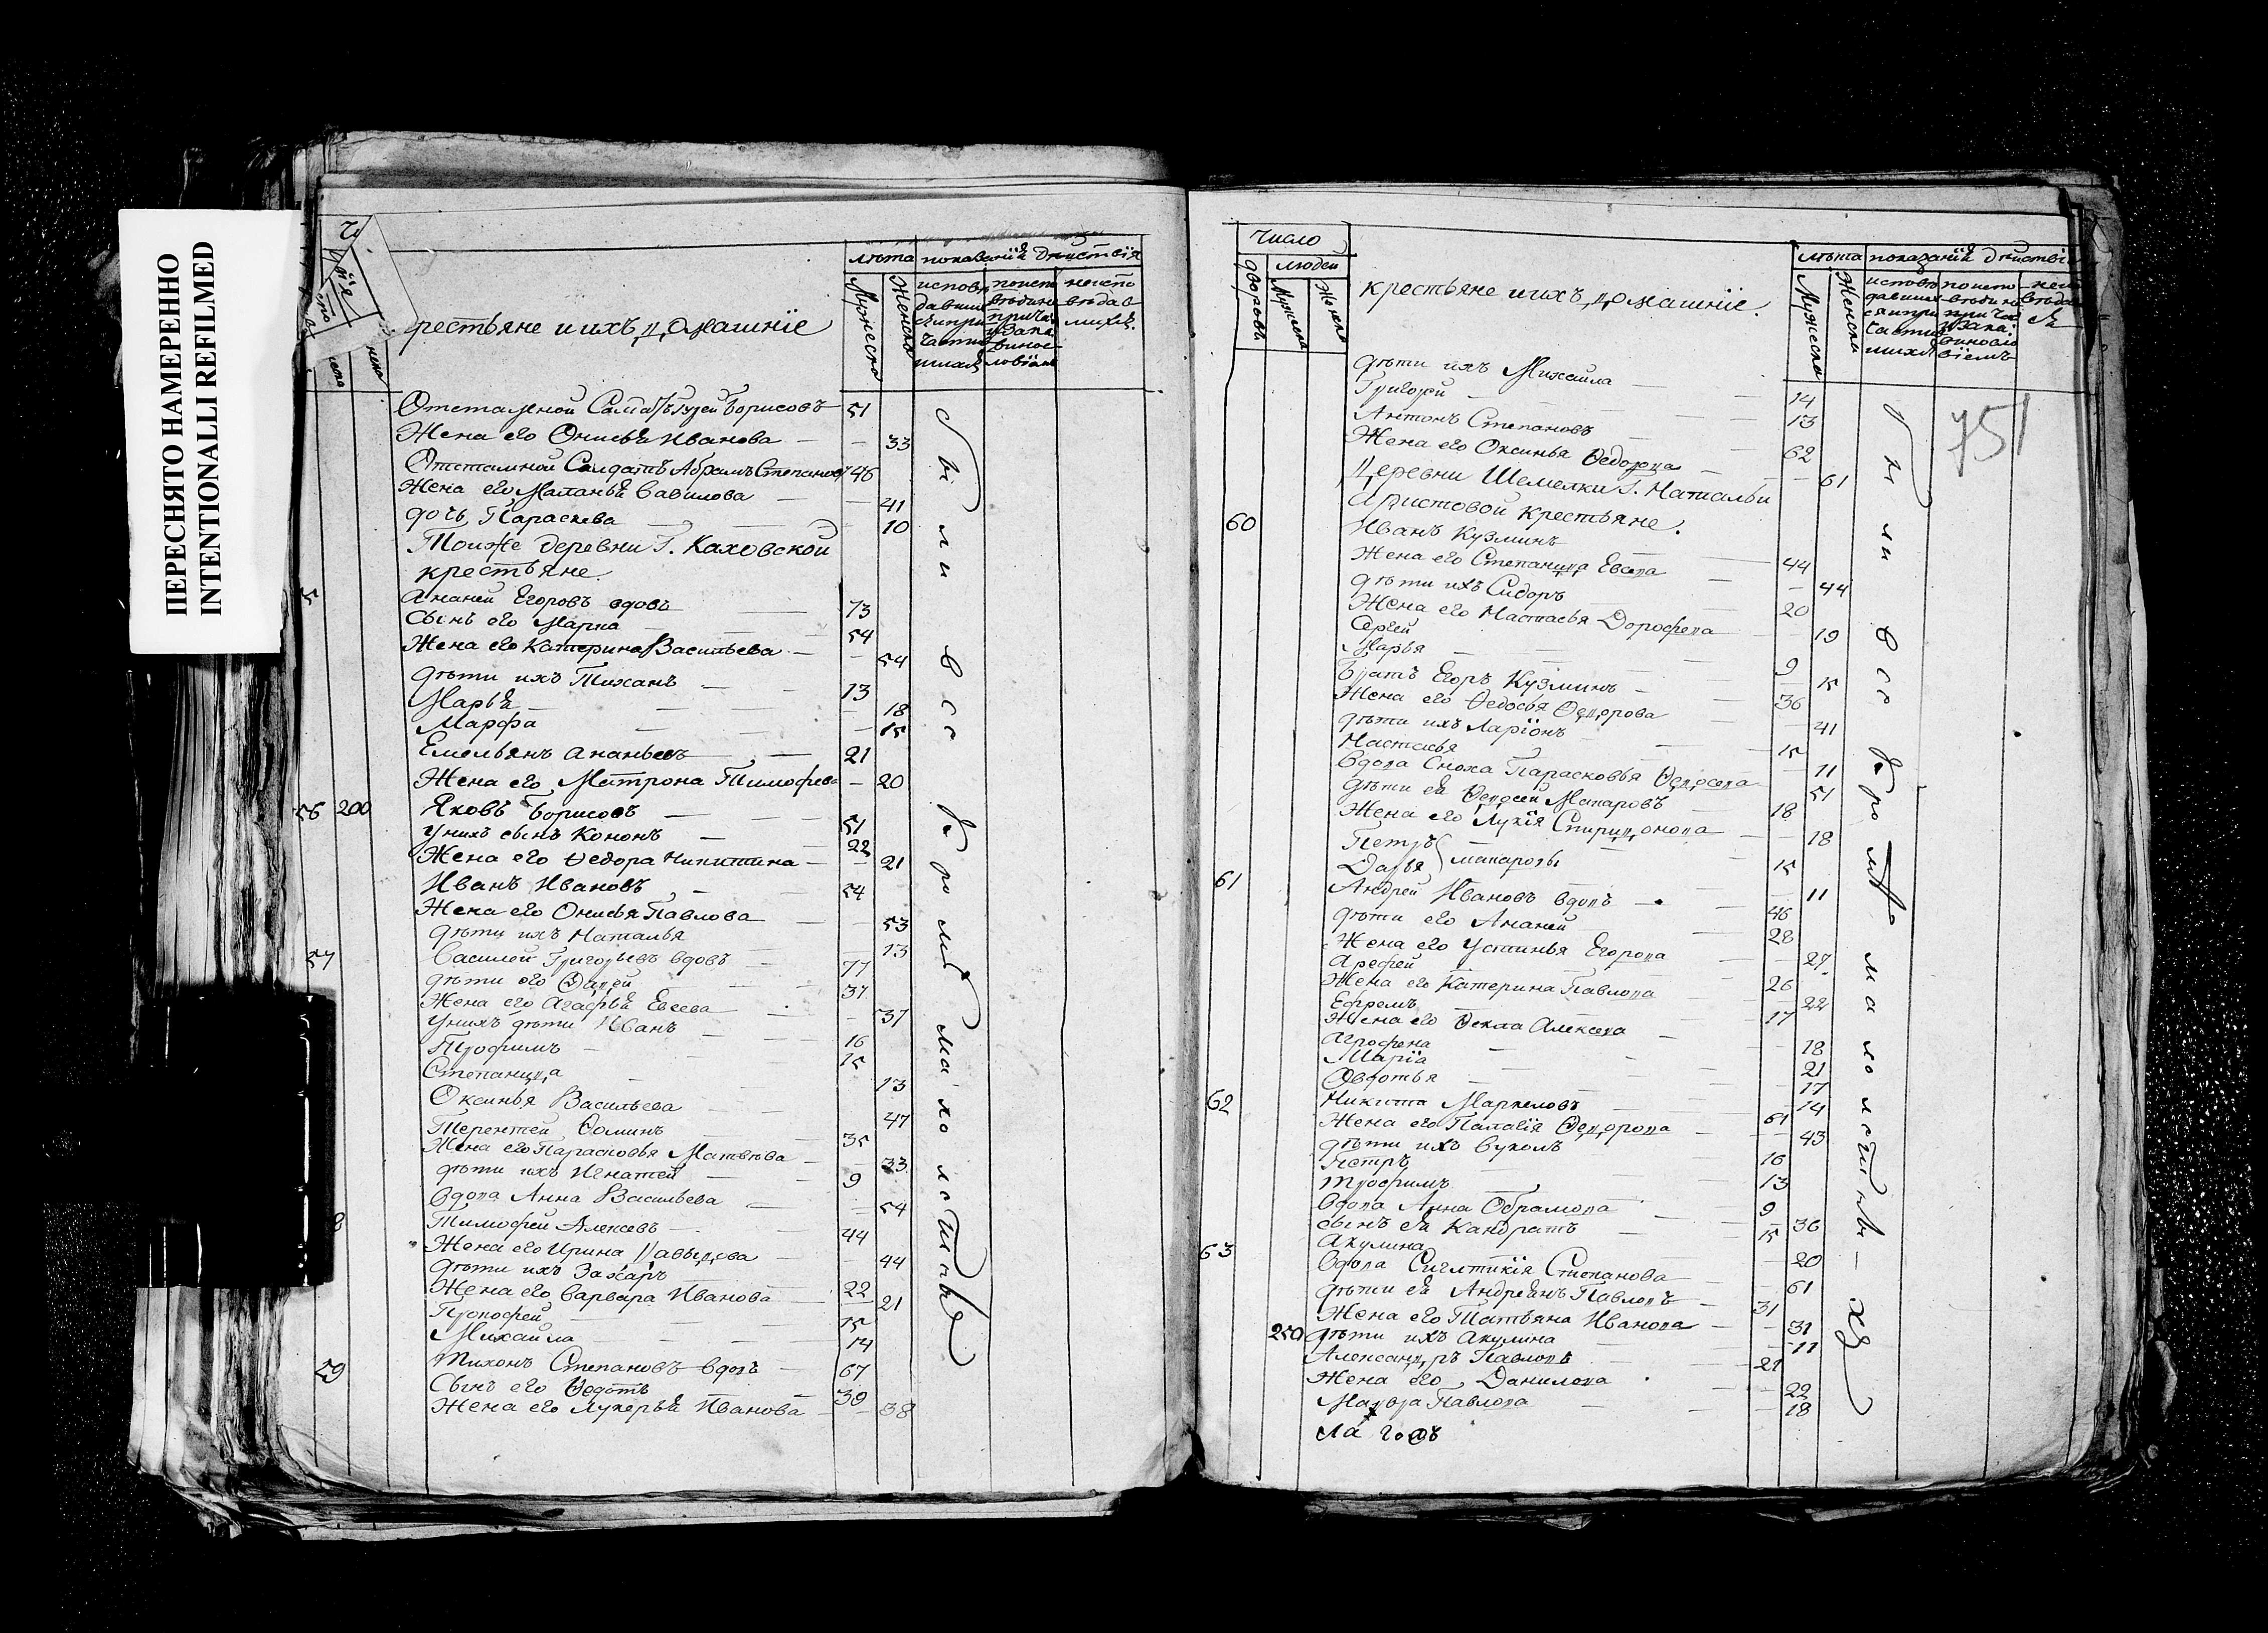 ПЕРЕСНЯТО НАМЕРЕННО
INTENTIONALLI REFILMED
рестьяне и ихъ домашнїе
лѣта показанїй дѣиствїя
Мужеска
Женска
Отсталной Салдатъ Гурей Борисовъ 51
Жена его Онисья Иванова 33
Отсталной Салдатъ Абрамъ Степановъ 46
Жена его Маланья Савилова 41
дочь Параскева 10
Тоиже деревни Г. Каховской
крестьяне
Ананей Егоровъ вдовъ 73
Сынъ его Марка 54
Жена его Катерина Васильева 54
дѣти ихъ Тиханъ 13
Марья 18
Марфа 15
Емельянъ Ананьевъ 21
Жена его Матрона Тимофева 20
56 200 Яковъ Борисовъ 51
Унихъ сынъ Кононъ 22
Жена его Ѳедора Никитина 21
Иванъ Ивановъ 54
Жена его Онисья Павлова 53
дѣти ихъ Наталья 13
57 Василей Григорьевъ вдовъ 77
дѣти его 37
Жена его Агафья Евсева 37
Унихъ дѣти Иванъ 16
Трофимъ 15
Степанида 13
Оксинья Васильева 47
Терентей Ѳоминъ 35
Жена его Парасковья Матвѣева 33
дѣти ихъ Игнатей 9
Вдова Анна Васильева 54
8 Тимофей Алексевъ 44
Жена его Ирина Давыдова 44
дѣти ихъ Захаръ 22
Жена его Варвара Иванова 21
Прокофей 15
Михаила 14
59 Тихонъ Степановъ вдовъ 67
Сынъ его Ѳедотъ 39
Жена его Лукерья Иванова 38
число
дворовъ
людей
Мужеска
Женска
крестьяне и ихъ домашнїе.
лѣта показанїй дѣиствїя
Мужеска
Женска
751
дѣти ихъ Михаила 14
Григорей 13
Антонъ Степановъ 62
Жена его Оксинья Ѳедорова 61
Деревни Шемелки Г. Натальи
Аристовой крестьяне.
60 Иванъ Кузминъ 44
Жена его Степанида Евсева 44
дѣти ихъ Сидоръ 20
Жена его Настасья Дорофева 19
Сергей 9
Марья 15
Братъ Егоръ Кузминъ 36
Жена его Ѳедосья Ѳедорова 41
дѣти ихъ Ларїонъ 15
Настасья 11
Вдова Сноха Парасковья Ѳедосева 51
дѣти ея Ѳедосей Макаровъ 18
Жена его Лукїя Спиридонова 18
Петръ Макаровы 15
Дарья 11
61 Андрей Ивановъ вдовъ 46
дѣти его Ананей 28
Жена его Устинья Егорова 27
Арефей 26
Жена его Катерина Павлова 22
Ефремъ 17
Жена его Ѳекла Алексева 18
Агрофена 21
Марїа 17
Овдотья 14
62 Никита Маркеловъ 61
Жена его Палагїя Ѳедорова 43
дѣти ихъ Вуколъ 16
Петръ 13
Трофимъ 9
Вдова Анна Обрамова 36
сынъ ея Кандратъ 15
Акулина 20
63 Вдова Сиглитикїя Степанова 61
дѣти ея Андреянъ Павловъ 31
Жена его Татьяна Иванова 31
250 дѣти ихъ Акулина 11
Александръ Павловъ 21
Жена его Данилова 22
Марѳа Павлова 18